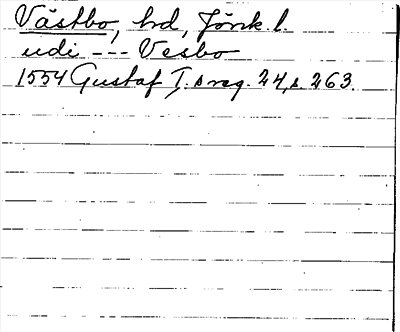 Västbo, hd, Jönk. l.
udi --- Vesbo
1554 Gustaf I:s reg. 24, s. 263.